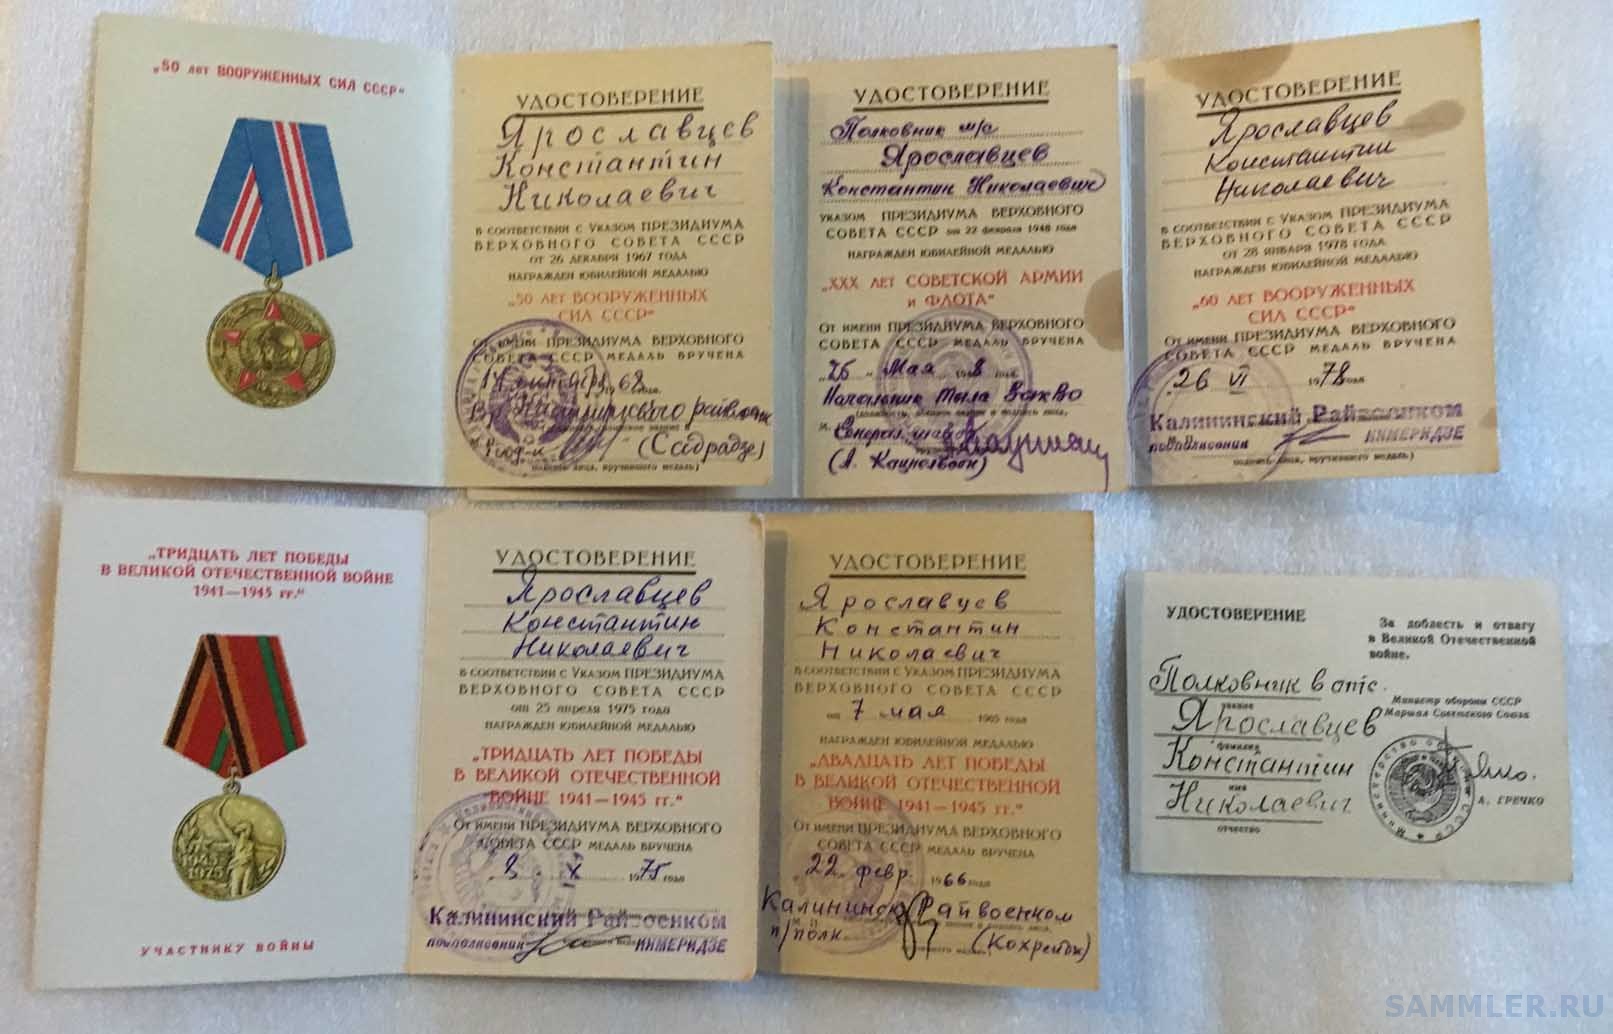 „50 лет ВООРУЖЕННЫХ СИЛ СССР“
УДОСТОВЕРЕНИЕ
Ярославцев
Константин
Николаевич
в соответствии с Указом ПРЕЗИДИУМА
ВЕРХОВНОГО СОВЕТА СССР
от 26 декабря 1967 года
награжден юбилейной медалью
„50 лет ВООРУЖЕННЫХ
СИЛ СССР“
От имени ПРЕЗИДИУМА ВЕРХОВНОГО
СОВЕТА СССР медаль вручена
14 октября 1968 года.
Калининского райвоенк
УДОСТОВЕРЕНИЕ
Полковник м/с
Ярославцев
Константин Николаевич
указом ПРЕЗИДИУМА ВЕРХОВНОГО
СОВЕТА СССР от 22 февраля 1948 года
награжден юбилейной медалью
„XXX лет СОВЕТСКОЙ АРМИИ
и ФЛОТА“
От имени ПРЕЗИДИУМА ВЕРХОВНОГО
СОВЕТА СССР медаль вручена
„26“ Мая 1948 года
Начальник тыла ЗакВО
(должность, воинское звание и подпись лица,
УДОСТОВЕРЕНИЕ
Ярославцев
Константин
Николаевич
в соответствии с Указом ПРЕЗИДИУМА
ВЕРХОВНОГО СОВЕТА СССР
от 28 января 1978 года
награжден юбилейной медалью
„60 лет ВООРУЖЕННЫХ
СИЛ СССР“
От имени ПРЕЗИДИУМА ВЕРХОВНОГО
СОВЕТА СССР медаль вручена
26 VI 1978 года
Калининский Райвоенком
подполковник ИНМЕРИДЗЕ
подпись лица, вручившего медаль)
„ТРИДЦАТЬ ЛЕТ ПОБЕДЫ
В ВЕЛИКОЙ ОТЕЧЕСТВЕННОЙ ВОЙНЕ
1941—1945 гг.“
УЧАСТНИКУ ВОЙНЫ
УДОСТОВЕРЕНИЕ
Ярославцев
Константин
Николаевич
в соответствии с Указом ПРЕЗИДИУМА
ВЕРХОВНОГО СОВЕТА СССР
от 25 апреля 1975 года
награжден юбилейной медалью
„ТРИДЦАТЬ ЛЕТ ПОБЕДЫ
В ВЕЛИКОЙ ОТЕЧЕСТВЕННОЙ
ВОЙНЕ 1941—1945 гг.“
От имени ПРЕЗИДИУМА ВЕРХОВНОГО
СОВЕТА СССР медаль вручена
X 1975 года
Калининский Райвоенком
подполковник ИНМЕРИДЗЕ
УДОСТОВЕРЕНИЕ
Ярославцев
Константин
Николаевич
в соответствии с Указом ПРЕЗИДИУМА
ВЕРХОВНОГО СОВЕТА СССР
от 7 мая 1965 года
награжден юбилейной медалью
„ДВАДЦАТЬ ЛЕТ ПОБЕДЫ
В ВЕЛИКОЙ ОТЕЧЕСТВЕННОЙ
ВОЙНЕ 1941—1945 гг.“
От имени ПРЕЗИДИУМА ВЕРХОВНОГО
СОВЕТА СССР медаль вручена
„22“ февр. 1966 года
Калининск Райвоенком
п/полк.
УДОСТОВЕРЕНИЕ
За доблесть и отвагу
в Великой Отечественной
войне.
Полковник в отс.
звание
Ярославцев
фамилия
Константин
имя
Николаевич
отчество
Министр обороны СССР
Маршал Советского Союза
А. ГРЕЧКО
SAMMLER.RU